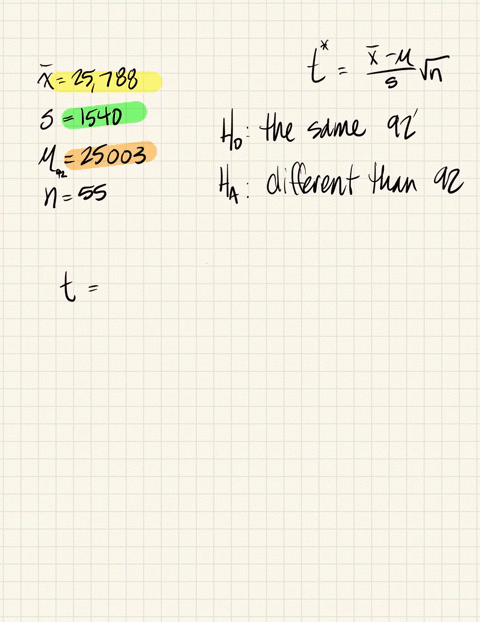 x̄ = 25,788
s = 1540
μ92 = 25003
n = 55
t* = x̄ - μ / s √n
H0: the same 92'
HA: different than 92
t =